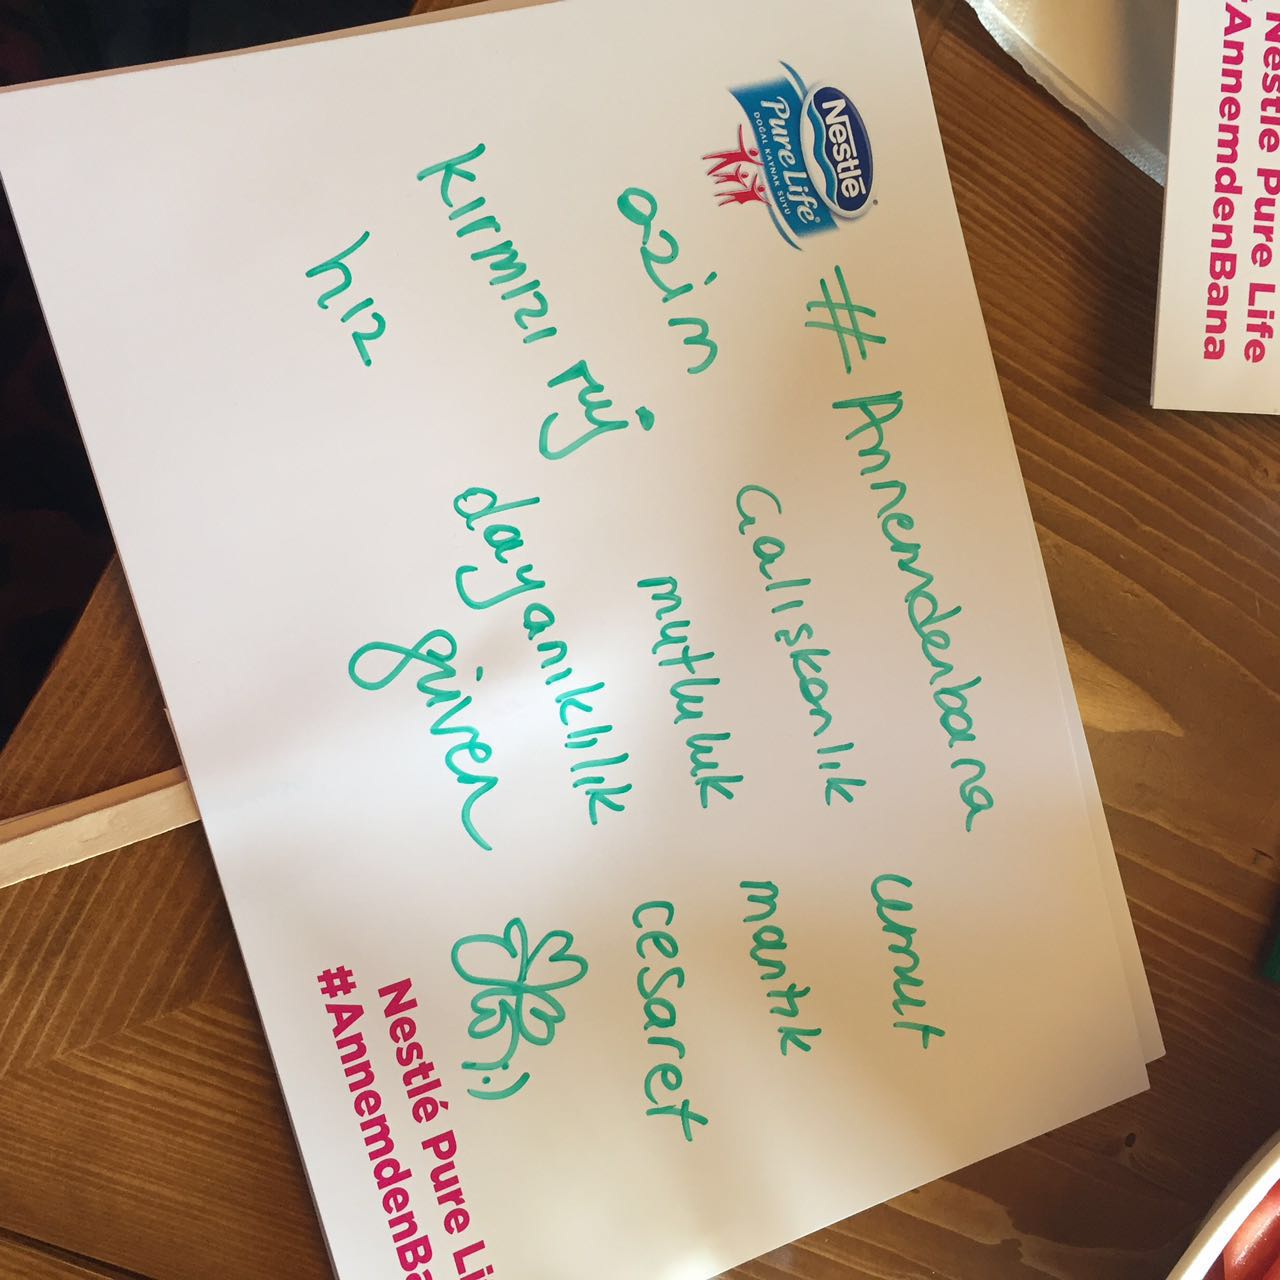 Nestlé
Pure Life
DOĞAL KAYNAK SUYU
#Annemdenbana
umut
azim
Çalışkanlık
mantık
kırmızı ruj
mutluluk
cesaret
hız
dayanıklılık
güven
:)
Nestlé Pure Li
#AnnemdenBa
Nestlé Pure Life
#AnnemdenBana